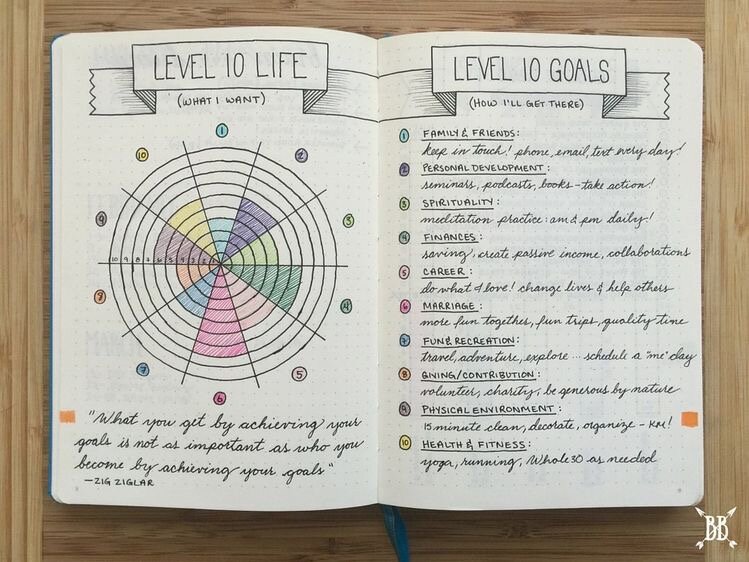 LEVEL 10 LIFE
(WHAT I WANT)
1
2
3
4
5
6
7
8
9
10
10 9 8 7 6 5 4 3 2 1
"What you get by achieving your
goals is not as important as who you
become by achieving your goals"
—ZIG ZIGLAR
LEVEL 10 GOALS
(HOW I'LL GET THERE)
1 FAMILY & FRIENDS:
keep in touch! phone, email, text every day!
2 PERSONAL DEVELOPMENT:
seminars, podcasts, books - take action!
3 SPIRITUALITY:
meditation practice: am & pm daily!
4 FINANCES:
saving, create passive income, collaborations
5 CAREER:
do what I love! change lives & help others
6 MARRIAGE:
more fun together, fun trips, quality time
7 FUN & RECREATION:
travel, adventure, explore ... schedule a "me" day
8 GIVING/CONTRIBUTION:
volunteer, charity, be generous by nature
9 PHYSICAL ENVIRONMENT:
15 minute clean, decorate, organize - KM!
10 HEALTH & FITNESS:
yoga, running, Whole30 as needed
BB